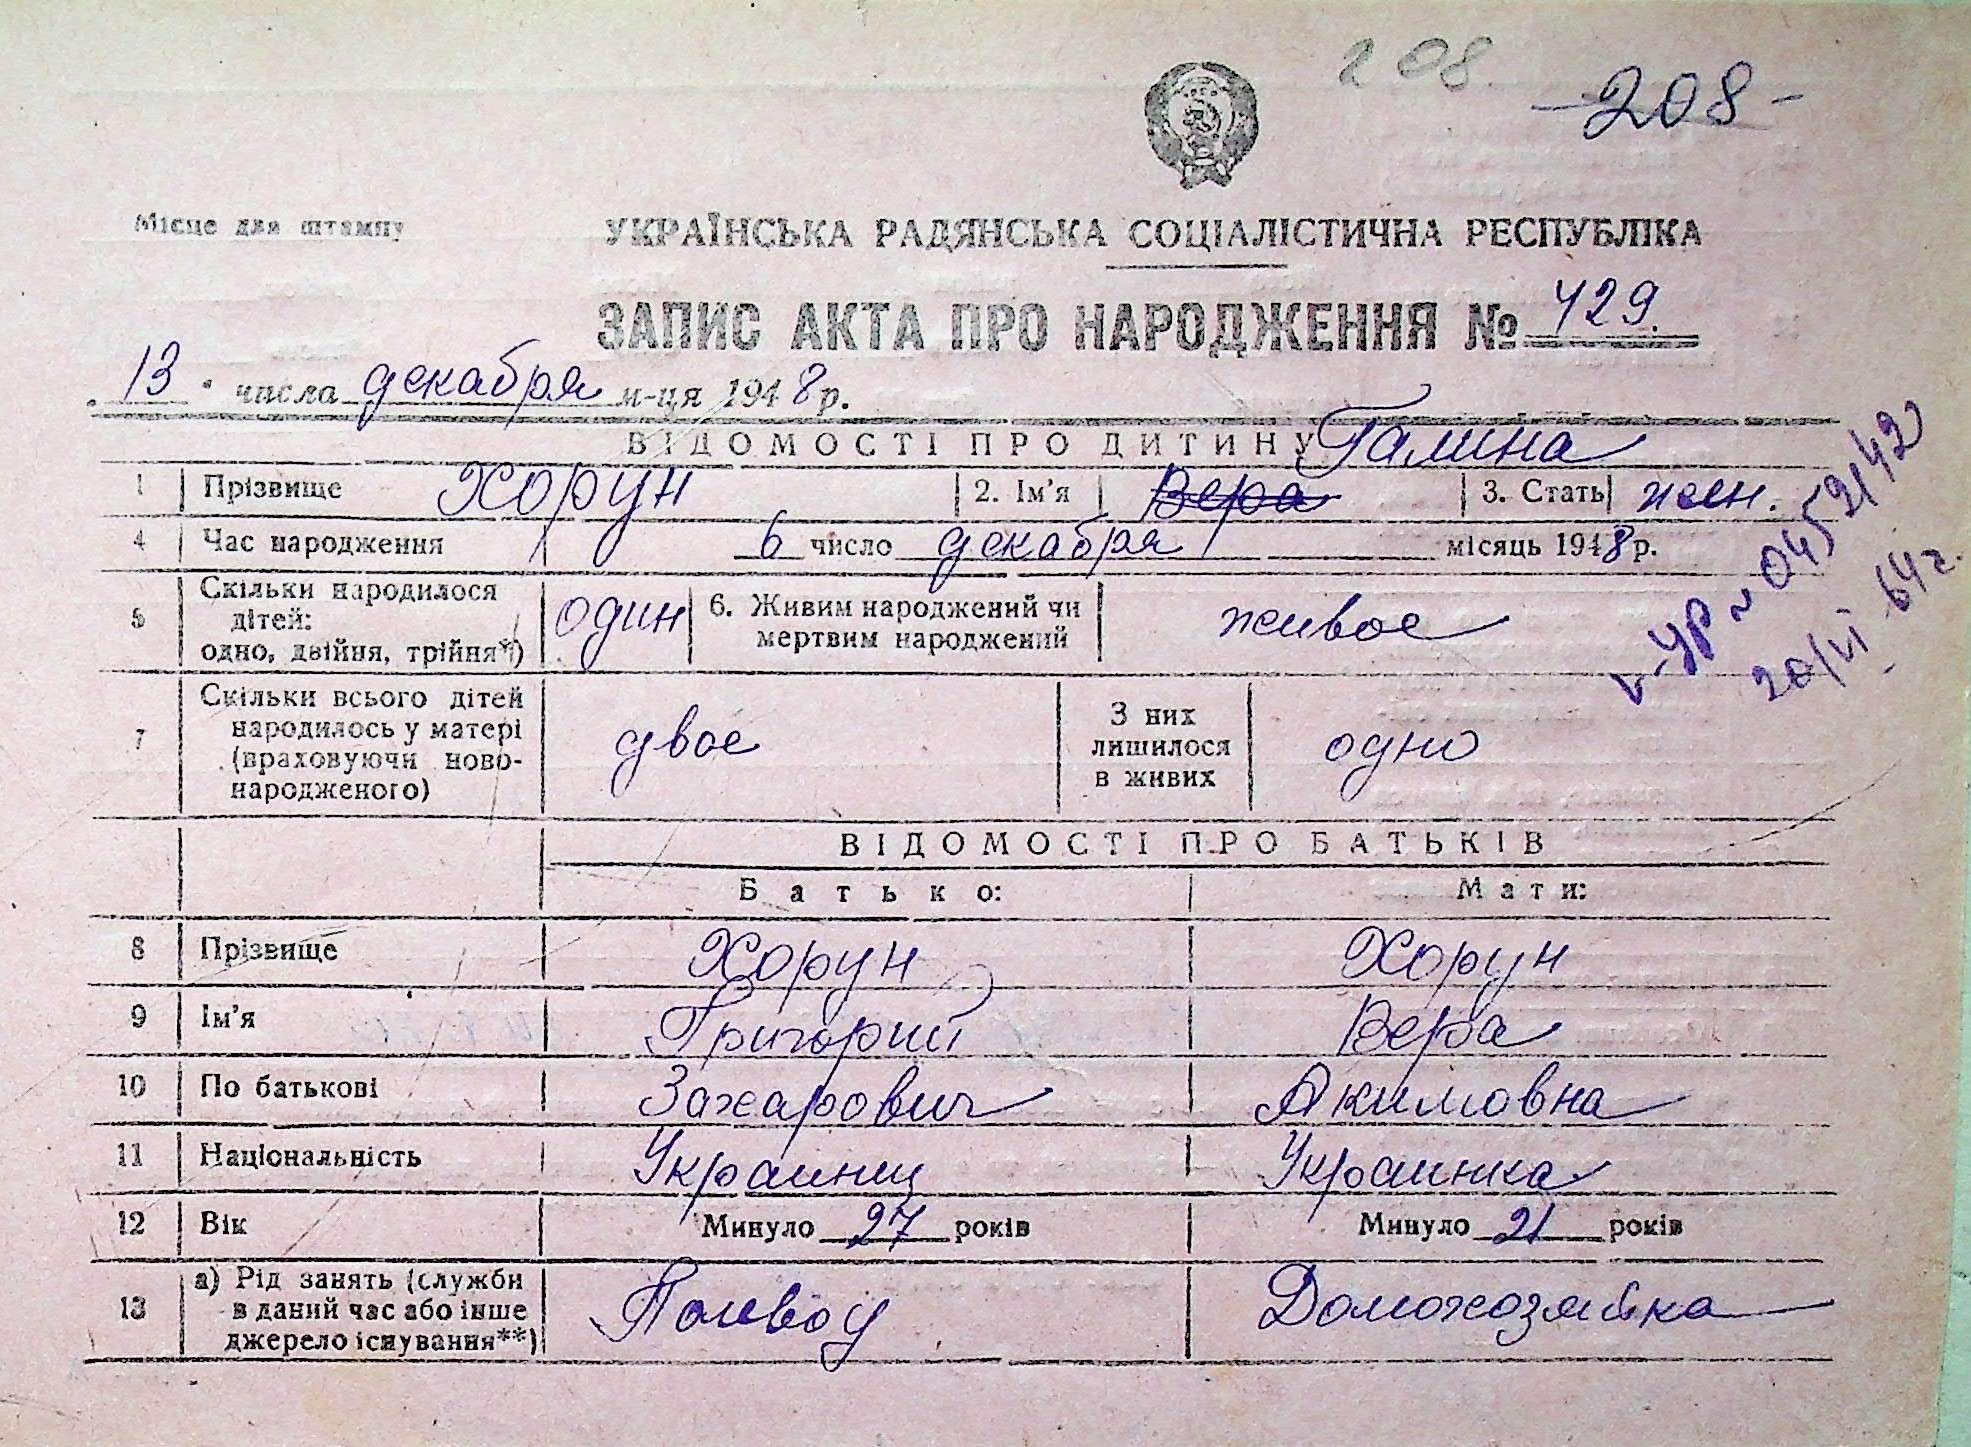 208
-208-
Місце для штампу
УКРАЇНСЬКА РАДЯНСЬКА СОЦІАЛІСТИЧНА РЕСПУБЛІКА
ЗАПИС АКТА ПРО НАРОДЖЕННЯ № 429.
13 числа декабря м-ця 1948 р.
ВІДОМОСТІ ПРО ДИТИНУ Галина
1 Прізвище Хорун 2. Ім'я Вера 3. Стать жен.
4 Час народження 6 число декабря місяць 1948 р.
5 Скільки народилося
дітей:
одно, двійня, трійня*)
один
6. Живим народжений чи
мертвим народжений
живое
-УР № 0452142
20/VI 64 г.
7 Скільки всього дітей
народилось у матері
(враховуючи ново-
народженого)
двое
З них
лишилося
в живих
одно
ВІДОМОСТІ ПРО БАТЬКІВ
Батько: Мати:
8 Прізвище Хорун Хорун
9 Ім'я Григорий Вера
10 По батькові Захарович Акимовна
11 Національність Украинец Украинка
12 Вік Минуло 27 років Минуло 21 років
13 а) Рід занять (служби
в даний час або інше
джерело існування**)
Домохозяйка